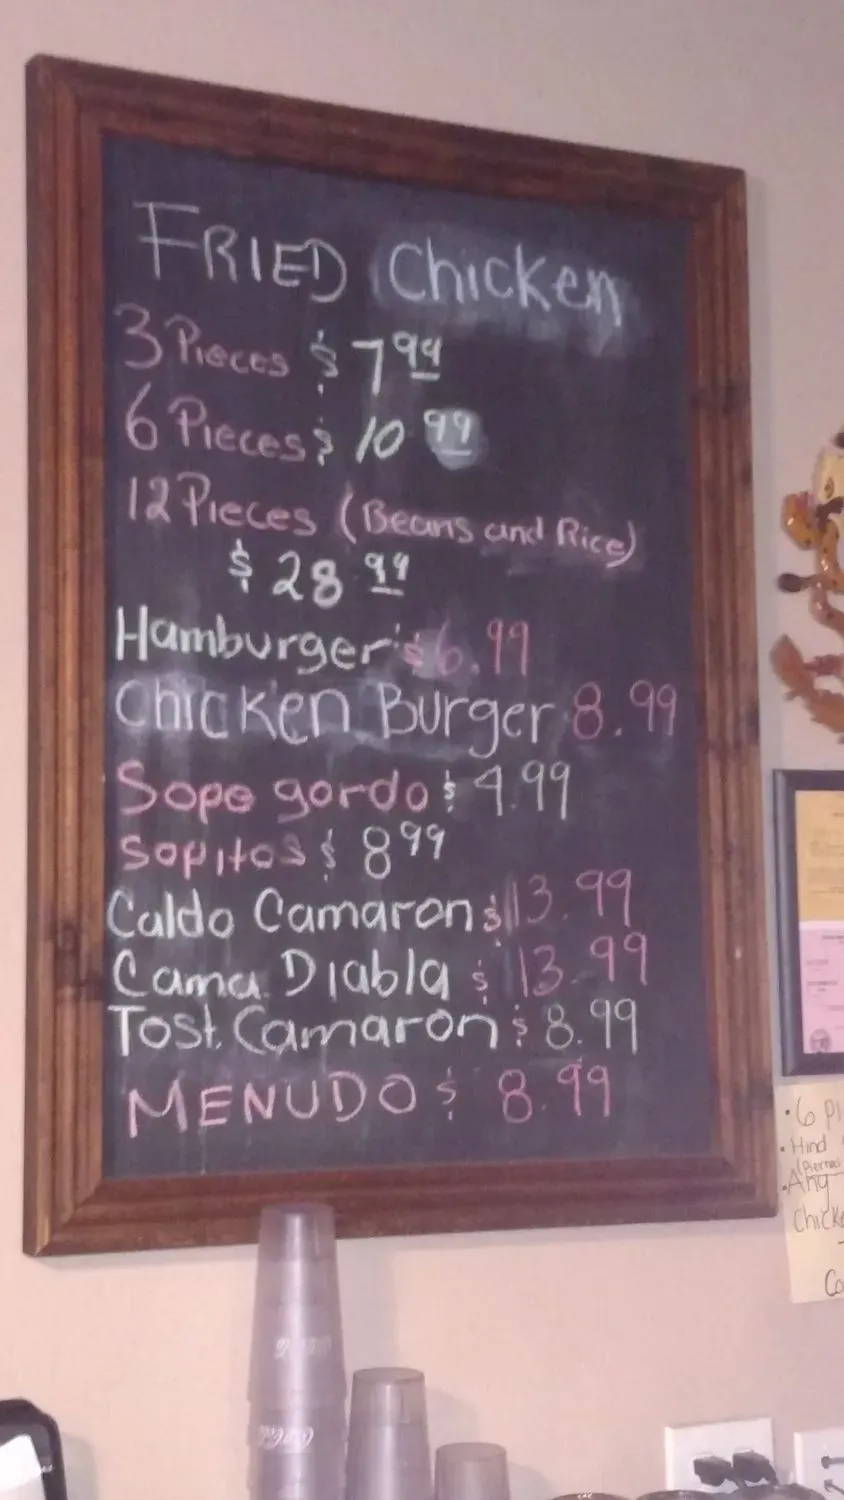 FRIED Chicken
3 Pieces $ 7 99
6 Pieces $ 10 99
12 Pieces (Beans and Rice)
$ 28 99
Hamburger $6.99
Chicken Burger 8.99
Sope gordo $ 4.99
Sopitos $ 8 99
Caldo Camaron $13.99
Cama. Diabla $ 13.99
Tost. Camaron $ 8.99
MENUDO $ 8.99
• 6 Pi
• Hind
(Pierna
• Any
Chick
Co